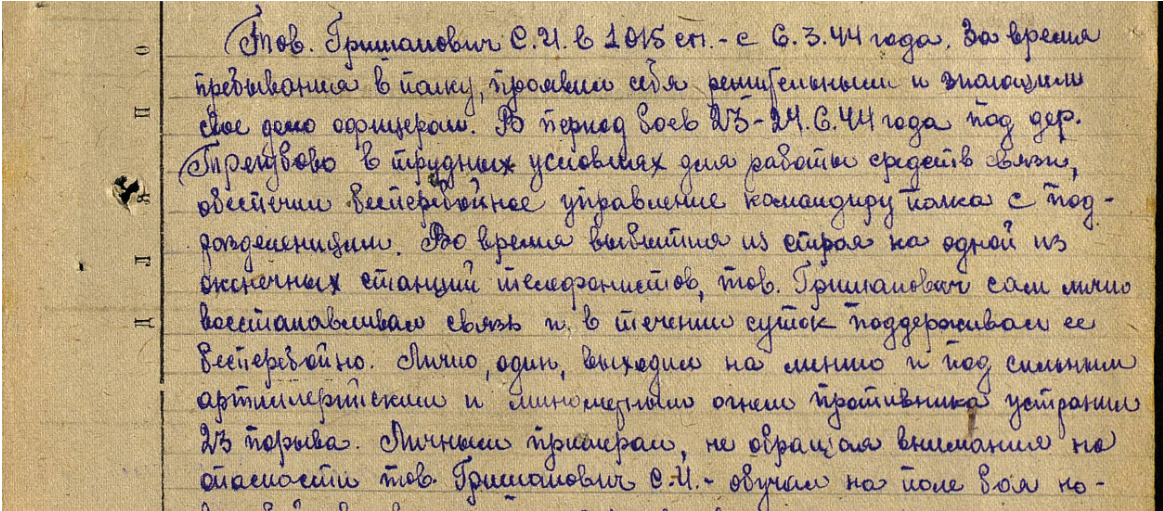 Тов. Гришанович С.И. в 1015 сп. - с 6.3.44 года. За время
пребывания в полку, проявил себя решительным и знающим
свое дело офицером. В период боев 23-24.6.44 года под дер.
в трудных условиях для работы средств связи,
обеспечил бесперебойное управление командиру полка с под-
разделениями. Во время выбытия из строя на одной из
оконечных станций телефонистов, тов. Гришанович сам лично
восстанавливал связь и в течении суток поддерживал ее
бесперебойно. Лично, один, выходил на линию и под сильным
артиллерийским и минометным огнем противника устранил
23 порыва. Личным примером, не обращая внимания на
опасности тов. Гришанович С.И. - обучал на поле боя но-
О
П
Я
Л
Д